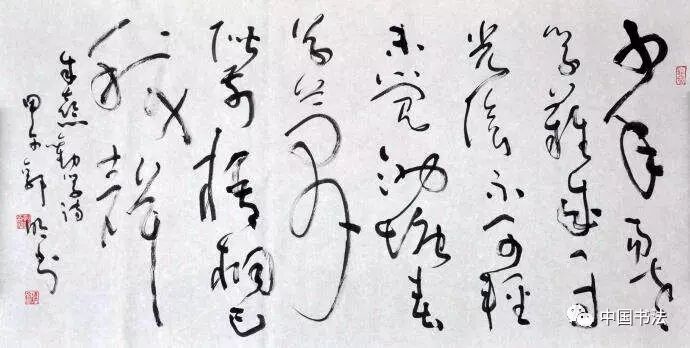 少年易老
学難成一寸
光陰不可輕
未觉池塘春
草夢
階前梧桐已
秋聲
朱熹勸学诗
甲午郭书
中国书法